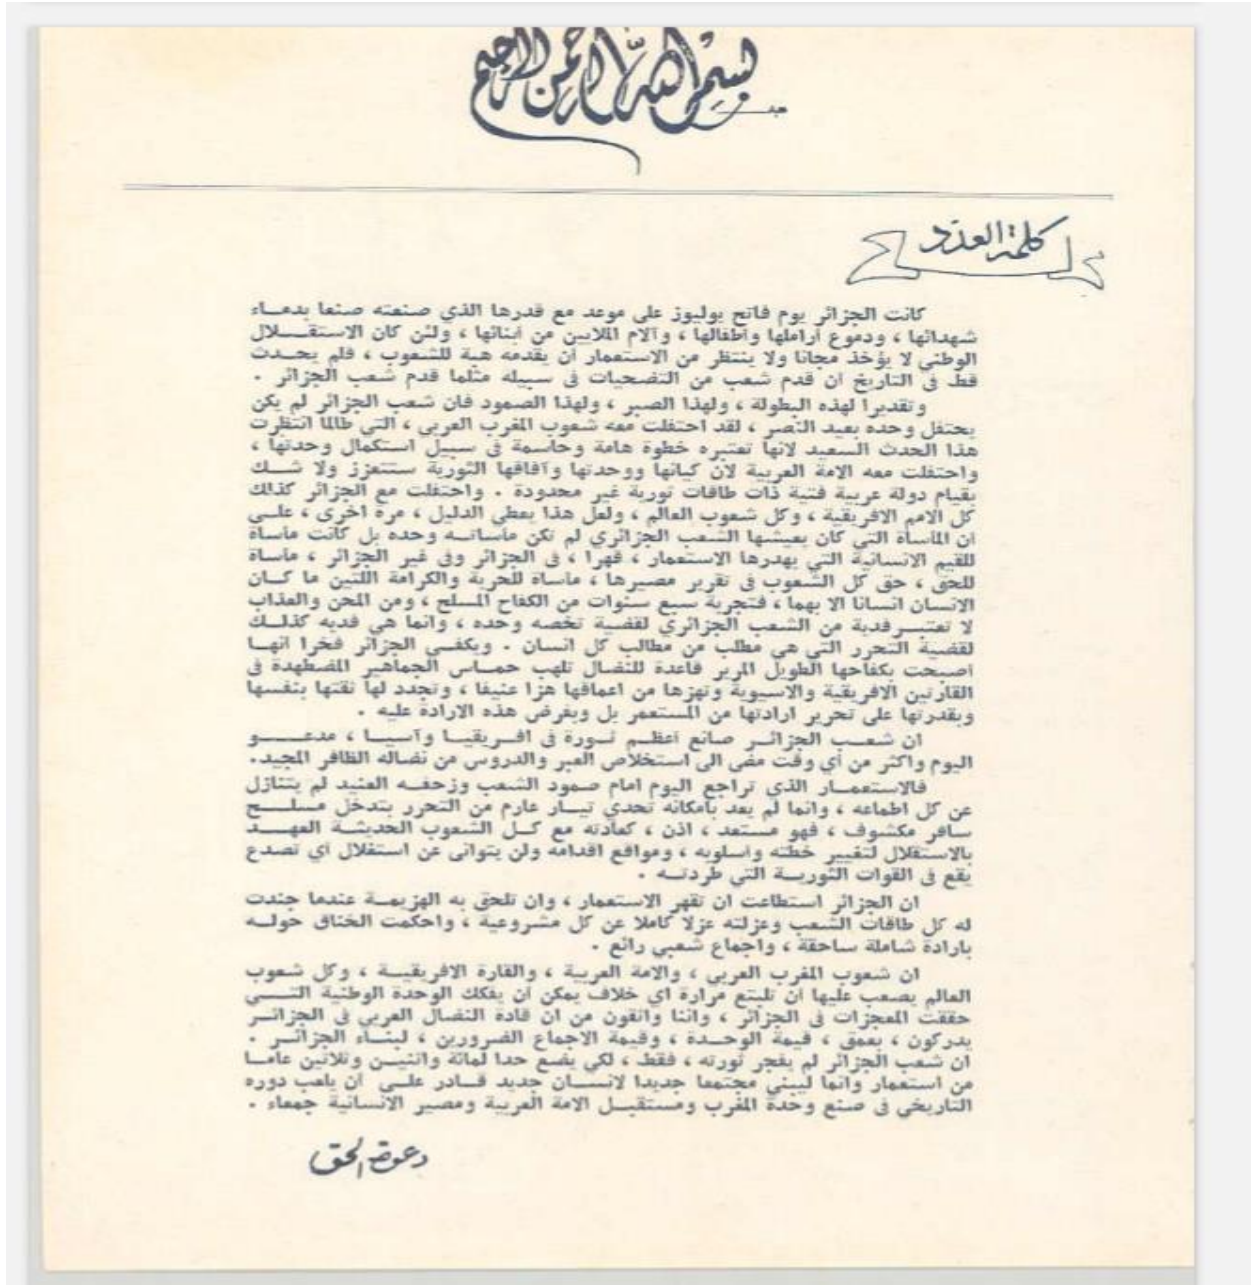 بسم الله الرحمن الرحيم
كلمة العدد
كانت الجزائر يوم فاتح يوليوز على موعد مع قدرها الذي صنعته صنعا بدمـاء
شهدائها ، ودموع أراملها وأطفالها ، وآلام الملايين من أبنائها ، ولئن كان الاستقـلال
الوطني لا يؤخذ مجانا ولا ينتظر من الاستعمار أن يقدمه هبة للشعوب ، فلم يحـدث
قط فى التاريخ ان قدم شعب من التضحيات فى سبيله مثلما قدم شعب الجزائر .
وتقديرا لهذه البطولة ، ولهذا الصبر ، ولهذا الصمود فان شعب الجزائر لم يكن
يحتفل وحده بعيد النصر ، لقد احتفلت معه شعوب المغرب العربي ، التي طالما انتظرت
هذا الحدث السعيد لانها تعتبره خطوة هامة وحاسمة فى سبيل استكمال وحدتها ،
واحتفلت معه الامة العربية لان كيانها ووحدتها وآفاقها الثورية ستتعزز ولا شـك
بقيام دولة عربية فتية ذات طاقات ثورية غير محدودة . واحتفلت مع الجزائر كذلك
كل الامم الافريقية ، وكل شعوب العالم ، ولعل هذا يعطى الدليل ، مرة اخرى ، علـى
ان المأساة التي كان يعيشها الشعب الجزائري لم تكن مأساتـه وحده بل كانت مأساة
للقيم الانسانية التي يهدرها الاستعمار ، قهرا ، فى الجزائر وفى غير الجزائر ، مأساة
للحق ، حق كل الشعوب فى تقرير مصيرها ، مأساة للحرية والكرامة اللتين ما كـان
الانسان انسانا الا بهما ، فتجربة سبع سنوات من الكفاح المسلح ، ومن المحن والعذاب
لا تعتبـر فدية من الشعب الجزائري لقضية تخصه وحده ، وانما هي فدية كذلـك
لقضية التحرر التي هي مطلب من مطالب كل انسان . ويكفـي الجزائر فخرا انهـا
اصبحت بكفاحها الطويل المرير قاعدة للنضال تلهب حمـاس الجماهير المضطهدة فى
القارتين الافريقية والاسيوية وتهزها من اعماقها هزا عنيفا ، وتجدد لها ثقتها بنفسها
وبقدرتها على تحرير ارادتها من المستعمر بل وبفرض هذه الارادة عليه .
ان شعـب الجزائـر صانع أعظـم ثـورة فى افـريقيـا وآسيـا ، مدعـــو
اليوم واكثر من أي وقت مضى الى استخلاص العبر والدروس من نضاله الظافر المجيد.
فالاستعمـار الذي تراجع اليوم امام صمود الشعب وزحفـه العنيد لم يتنازل
عن كل اطماعه ، وانما لم يعد بامكانه تحدي تيـار عارم من التحرر بتدخل مسلـح
سافر مكشوف ، فهو مستعد ، اذن ، كعادته مع كـل الشعوب الحديثـة العهـد
بالاستقلال لتغيير خطته واسلوبه ، ومواقع اقدامه ولن يتوانى عن استغلال أي تصدع
يقع فى القوات الثوريـة التي طردتـه .
ان الجزائر استطاعت ان تقهر الاستعمار ، وان تلحق به الهزيمـة عندما جندت
له كل طاقات الشعب وعزلته عزلا كاملا عن كل مشروعية ، واحكمت الخناق حولـه
بارادة شاملة ساحقة ، واجماع شعبي رائع .
ان شعوب المغرب العربي ، والامة العربية ، والقارة الافريقيـة ، وكل شعوب
العالم يصعب عليها ان تبتلع مرارة اي خلاف يمكن أن يفكك الوحدة الوطنية التـــي
حققت المعجزات فى الجزائر ، واننا واثقون من ان قادة النضال العربي فى الجزائـر
يدركون ، بعمق ، قيمة الوحـدة ، وقيمة الاجماع الضرورين ، لبنـاء الجزائـر .
ان شعب الجزائر لم يفجر ثورته ، فقط ، لكي يضع حدا لمائة واثنيـن وثلاثين عامـا
من استعمار وانما ليبني مجتمعا جديدا لانسـان جديد قـادر علـى أن يلعب دوره
التاريخي فى صنع وحدة المغرب ومستقبـل الامة العربية ومصير الانسانية جمعاء .
دعوة الحق